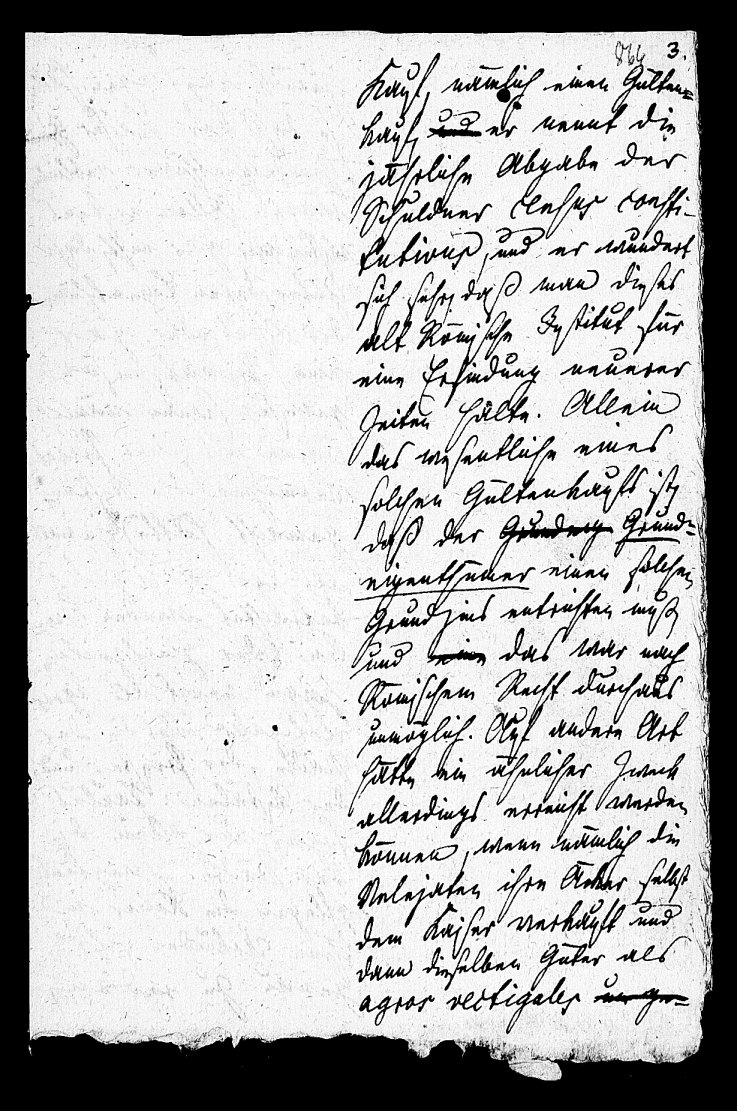 866 3.
Kauf, nämlich einen Gülten=
kauf, und er nennt die
jährliche Abgabe der
Schuldner census consti-
tutivus, und er wundert
sich sehr, daß man dieses
alt Römische Institut für
eine Erfindung neuerer
Zeiten halte. Allein
das wesentliche eines
solchen Gültenkaufs ist,
daß der Grund=
eigenthümer einen solchen
Grundzins entrichten muß,
und eine das war nach
Römischem Recht durchaus
unmöglich. Auf andere Art
hätte ein ähnlicher Zweck
allerdings erreicht werden
können, wenn nämlich die
Velejaten ihre Äcker selbst
dem Kaiser verkauft und
dann dieselben Güter als
agros vectigales um ge=